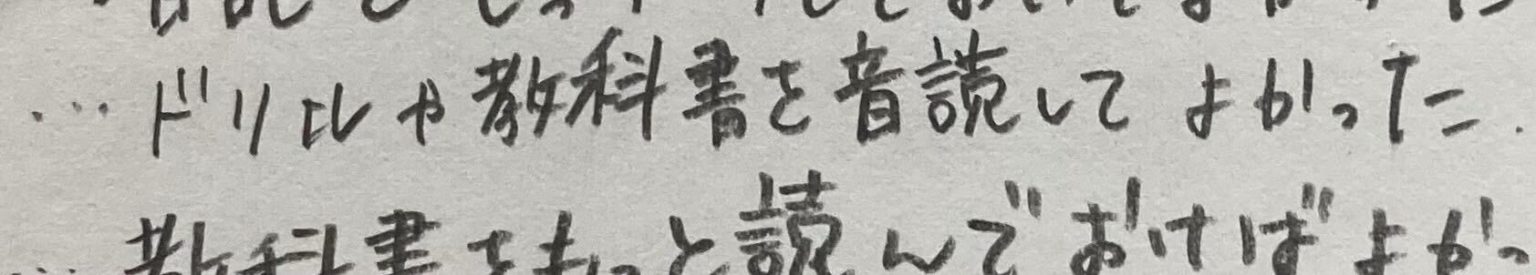 … ドリルや教科書を音読してよかった.
… 教科書をもっと読んでおけばよかっ